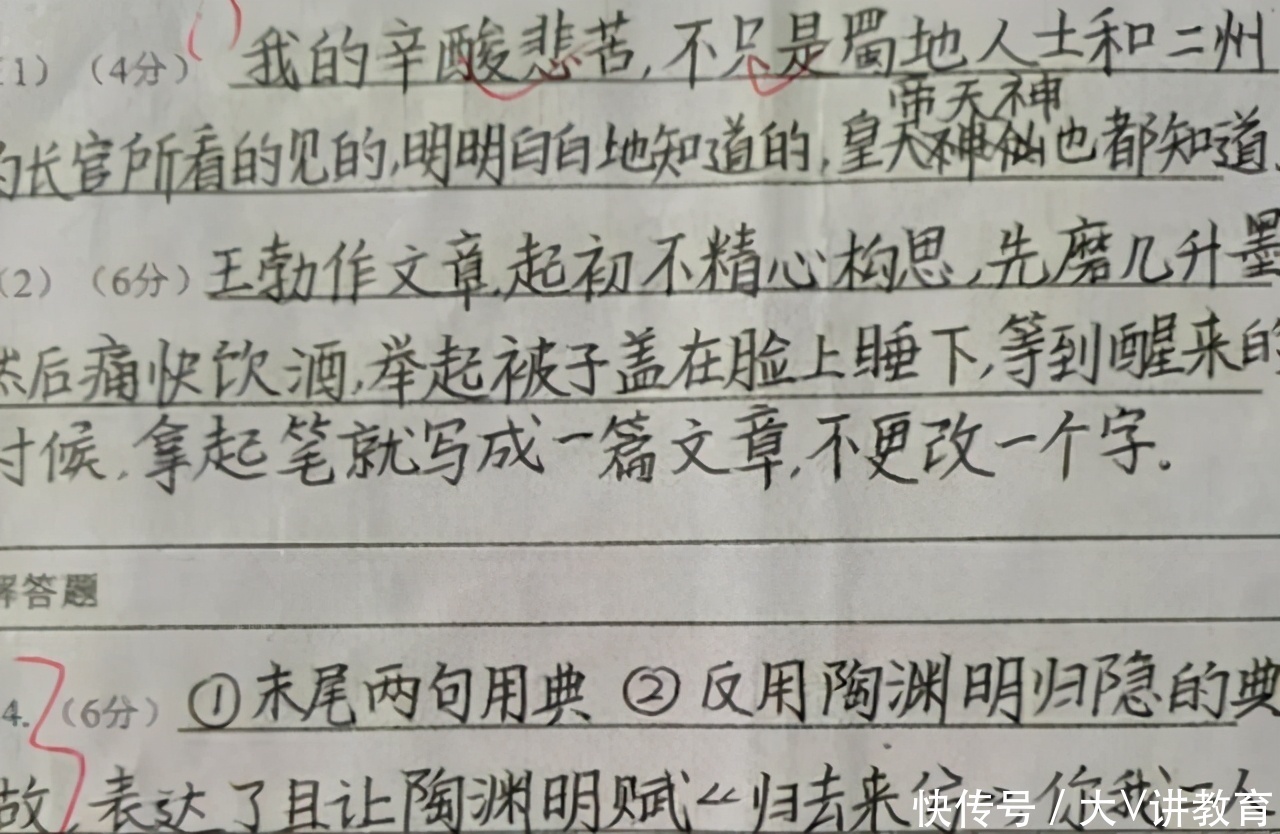 1)（4分）我的辛酸悲苦,不只是蜀地人士和二州
帝天神
长官所看的见的,明明白白地知道的,皇天神仙也都知道.
(2)（6分）王勃作文章,起初不精心构思,先磨几升墨
然后痛快饮酒,举起被子盖在脸上睡下,等到醒来的
时候,拿起笔就写成一篇文章,不更改一个字.
解答题
4.（6分）①末尾两句用典 ②反用陶渊明归隐的典
故,表达了且让陶渊明赋“归去来
快传号 / 大V讲教育